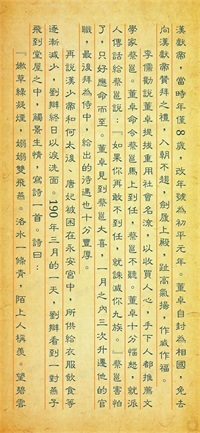 漢獻帝，當時年僅8歲，改年號為初平元年。董卓自封為相國，免去
向漢獻帝贊拜之禮，入朝不趨，劍履上殿，趾高氣揚，作威作福。
李儒勸說董卓提拔重用社會名流，以收買人心，手下人都推薦文
學家蔡邕。董卓命令蔡邕馬上到任，蔡邕不聽。董卓十分惱怒，就派
人傳話給蔡邕說：『如果你再敢不到任，就誅滅你九族。』蔡邕害怕
了，只好應命而至。董卓見到蔡邕大喜，一月之內三次升遷他的官
職，最後拜為侍中，給出的待遇也十分豐厚。
再說漢少帝和何太後、唐妃被困在永安宮中，所供給衣服飲食等
逐漸減少，劉辯終日以淚洗面。190年三月的一天，劉辯看到一對燕子
飛到堂屋之中，觸景生情，寫詩一首。詩曰：
『嫩草綠凝煙，嫋嫋雙飛燕。洛水一條青，陌上人稱羨。望碧雲